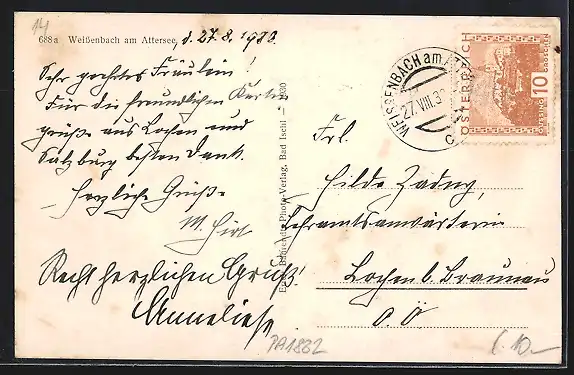 14
688a Weißenbach am Attersee, d. 27.8.1933.
Sehr geehrtes Fräulein!
Für die freundlichen Karten
grüße aus Lochen und
Salzburg besten Dank.
Herzliche Grüße
M. Hirt
Recht herzlichen Gruß!
Anneliese
Photo-Verlag, Bad Ischl — 1930
WEISSENBACH am ATT
27.VIII.3
ÖSTERREICH
10
GROSCHEN
GÜSSING
Frl.
Hilde Zadny,
Lehramtsanwärterin
Lochen b. Braunau
O.Ö.
PA1882